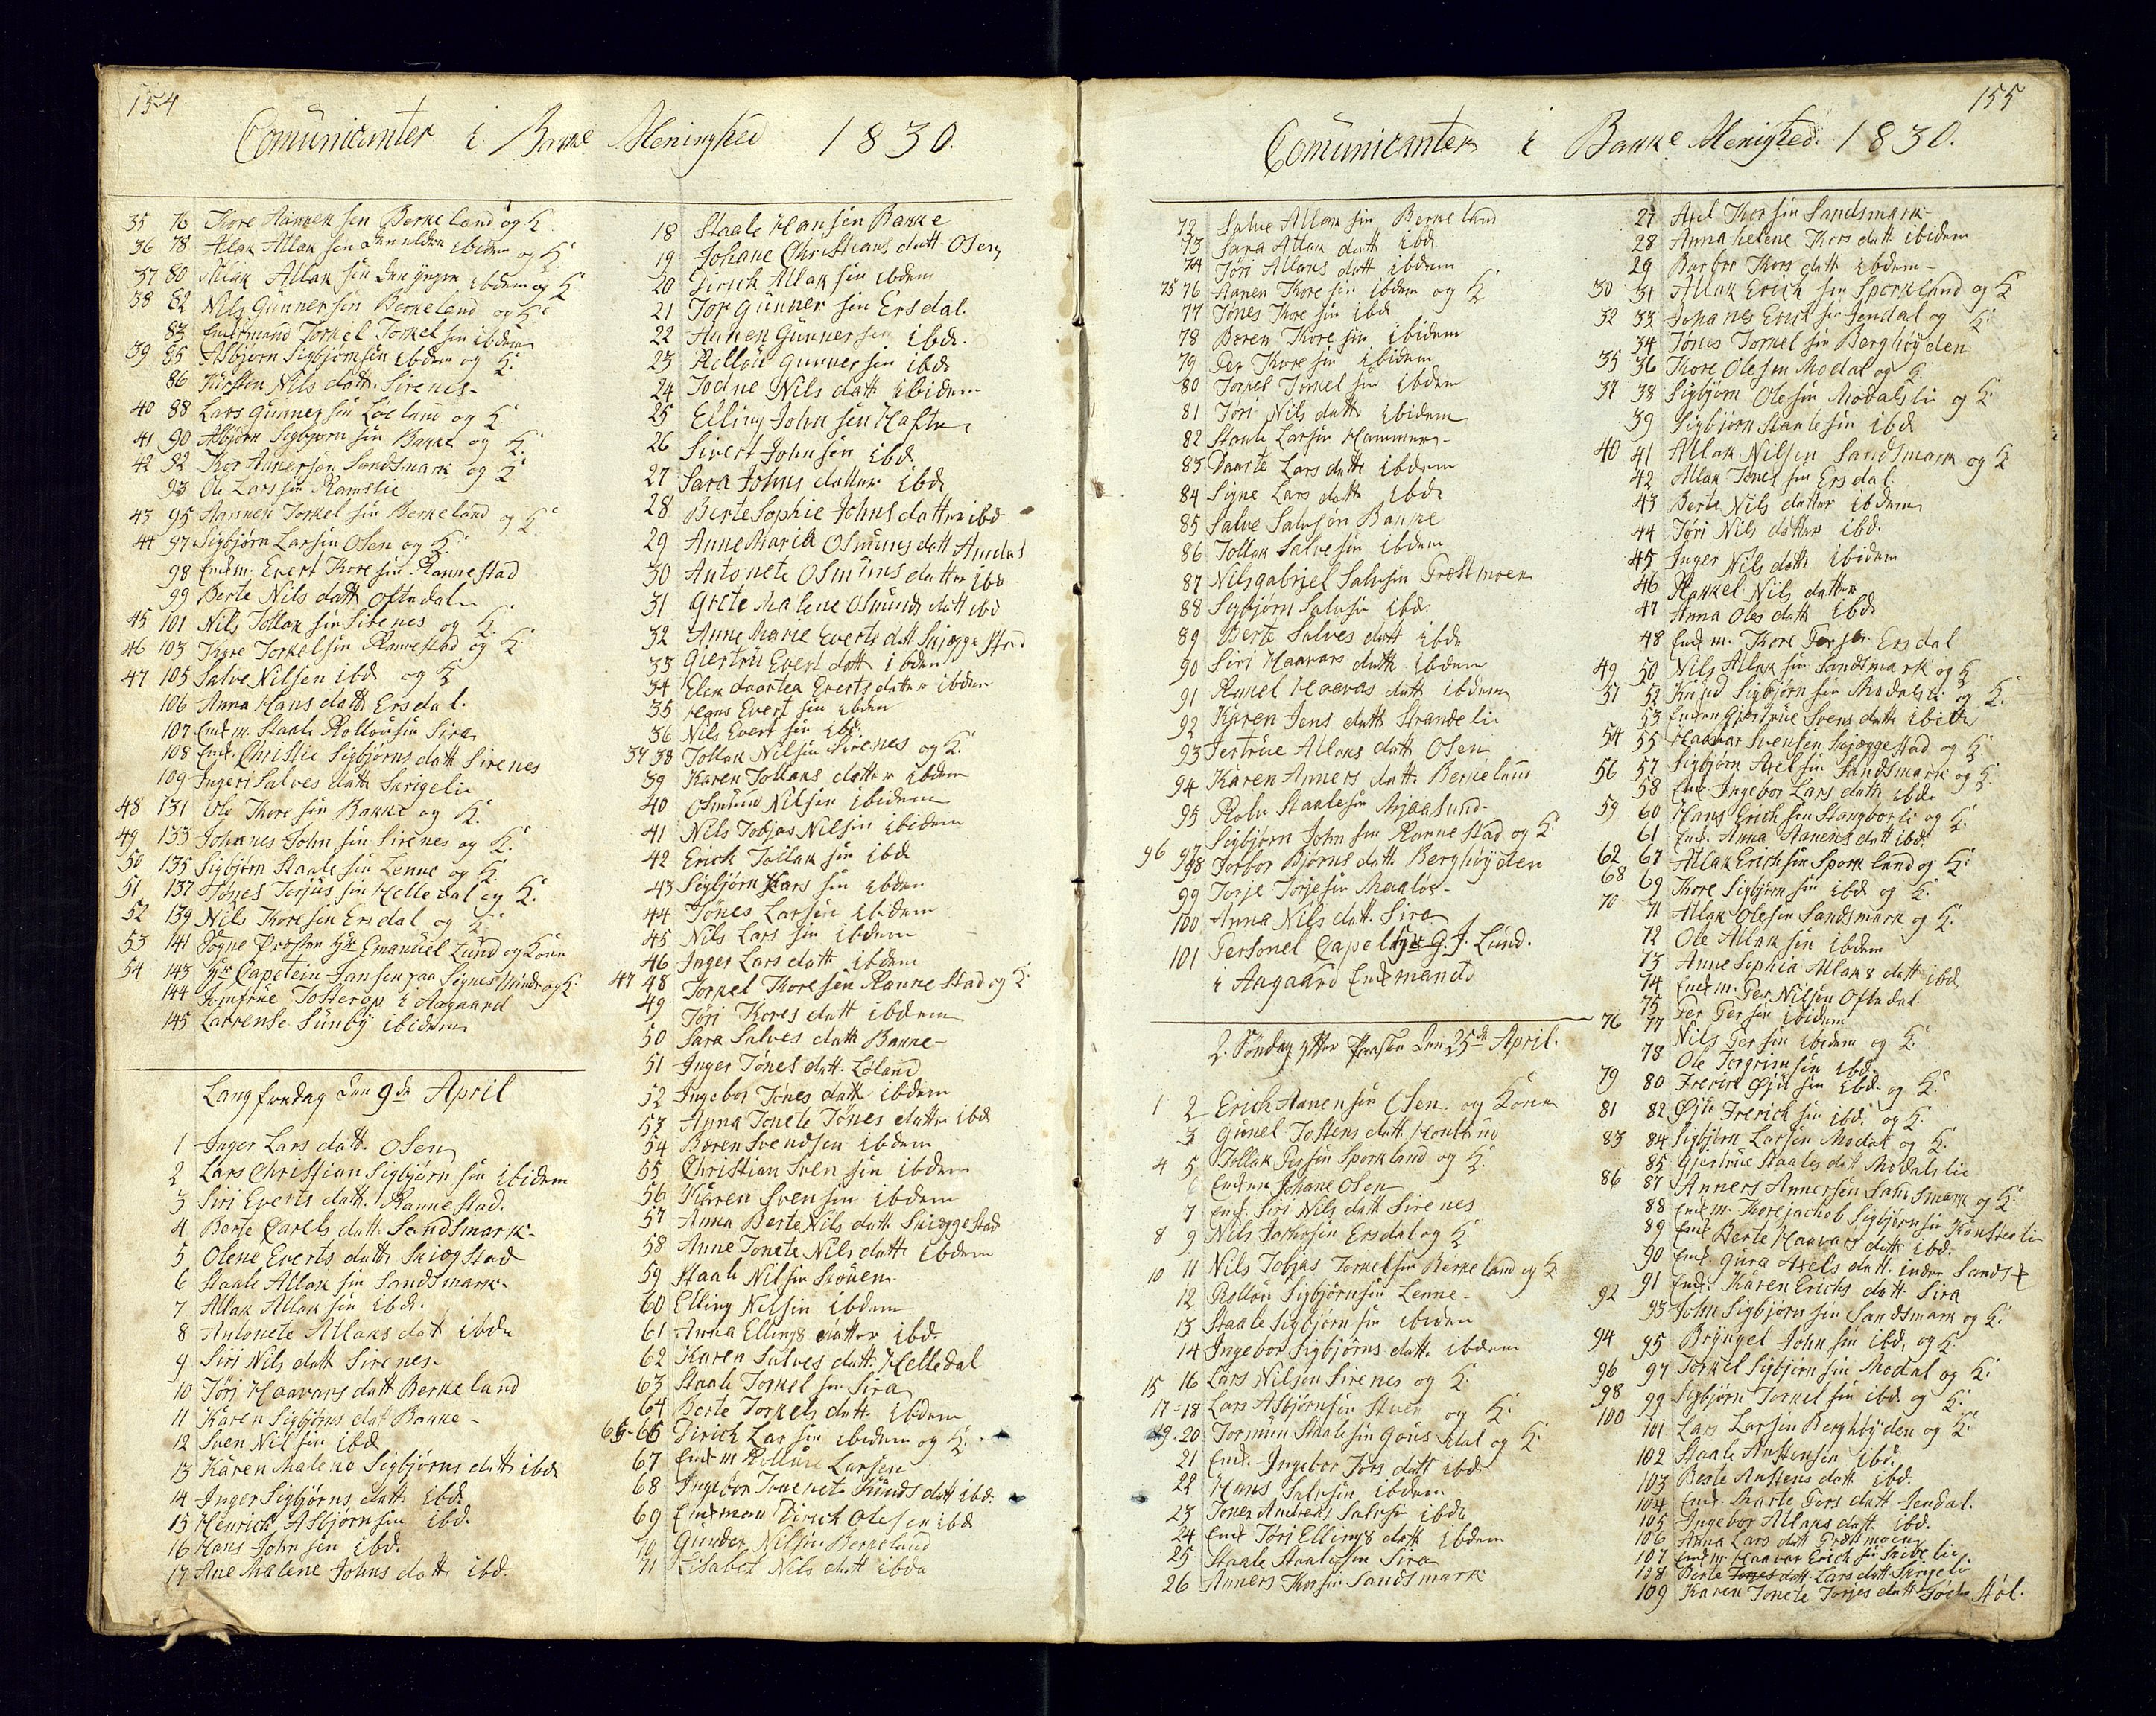 154
Comunicanter i Bakke Meninghed 1830.
35 76 Thore Aanen sen Berkeland og K
36 78 Atlak Atlak sen den eldre ibidem og K.
37 80 Atlak Atlak sin den yngre ibdem og K
38 82 Nils Gunner sin Berkeland og K
83 Enkemand Torkel Torkel sin ibdem
39 85 Asbjørn Sigbjørnsin ibdem og K.
86 Kirsten Nils datt. Sirenes-
40 88 Lars Gunner sin Løland og K
41 90 Asbjørn Sigbjørn sin Bakke og K.
42 92 Thor Annersen Sandsmark og K
93 Ole Lars sin Ramslie
43 95 Aannen Torkel sin Berkeland og K.
44 97 Sigbjørn Larsin Osen og K.
98 Enkm. Evert Thore sin Rannestad
99 Berte Nils datt Oftedal
45 101 Nils Tollak sin Sirenes og K.
46 103 Thore Torkelsin Rannestad og K.
47 105 Salve Nilsen ibd og K
106 Anna Hans datt Ersdal.
107 Enkm. Staale Rollousin Sira
108 Enk. Christie Sigbjørns datt Sirenes
109 Ingeri Salves datt Skrigelie
48 131 Ole Thore sin Bakke og K.
49 133 Johanes John sin Sirenes og K.
50 135 Sigbjørn Staale sin Lenne og K.
51 137 Tønes Torjus sin Helledal og K.
52 139 Nils Thore sen Ersdal og K
53 141 Sogne Præsten Hr Emanuel Lund og Kone
54 143 Hr Capetein Jansen paa Signes Minde og K
144 Jomfrue Tosterop i Aagaard
145 Larrense Sunby ibidem
Langfredag den 9de April
1 Inger Lars datt. Osen
2 Lars Christian Sigbjørn sin ibidem
3 Siri Everts datt. Rannestad.
4 Berte Carels datt. Sandsmark-
5 Olene Everts datt Skiægstad
6 Staale Atlak sin Sandsmark-
7 Atlak Atlak sin ibd.
8 Antonete Atlaks dat ibde
9 Siri Nils datt Sirenes-
10 Tøri Haavars datt Berkeland
11 Karen Sigbjørns dat Bakke-
12 Sven Nil sin ibd
13 Karen Malene Sigbjørns datt ibd
14 Inger Sigbjørns datt. ibd.
15 Henrich Asbjørnsin ibd.
16 Hans John sin ibd.
17 Ane Malene Johns datt ibd.
18 Staale Hansin Bakke
19 Johane Christians datt. Osen
20 Dirich Atlak sin ibdem
21 Tor Gunner sin Ersdal.
22 Aanen Gunnersin ibd.
23 Rollou Gunnersin ibd
24 Todne Nils datt ibidem
25 Elling John sin Hafte
26 Sivert John sin ibd.
27 Sara Johns datter ibd
28 Berte Sophie Johns datter ibd
29 Anne Maria Osmunds datt Amdal
30 Antonete Osmunds datter ibd
31 Grete Malene Osmunds datt ibd
32 Anne Marie Everts datt Skiæggestad
33 Giertru Evert datt ibdem
34 Elen daartea Everts datter ibdem
35 Hans Evert sin ibdem
36 Nils Evert sin ibd.
37 38 Tollak Nilsin Sirenes og K.
39 Karen Tollaks datter ibdem
40 Osmund Nilsin ibidem
41 Nils Tobjas Nilsin ibidem
42 Erick Tollak sin ibd
43 Sigbjørn Lars sin ibdem
44 Tønes Larsin ibdem
45 Nils Lars sin ibdem
46 Inger Lars datt ibdem
47 48 Torkel Thoresin Rannestad og K
49 Tøri Thores datt ibdem
50 Sara Salves datt Bakke-
51 Inger Tønes datt. Løland
52 Ingebor Tønes datt ibdem
53 Anna Tonete Tønes datt ibd
54 Bæren Svendsen ibdem
55 Christian Sven sin ibdem
56 Karen Sven sin ibdem
57 Anna Berte Nils datt Skiæggestad
58 Anne Tonete Nils datt ibdem
59 Staale Nilsin Skouen
60 Elling Nilsin ibdem
61 Anna Ellings datter ibd.
62 Karen Salves datt Helledal
63 Staale Torkel sin Sira
64 Berte Torkels datt. ibdem
65-66 Dirich Lar sin ibidem og K.
67 Enkm Rolluse Larsen
68 Ingebor Tonenete datt ibd.
69 Enkeman Dirich Olesen ibd
70 Gunder Nilsin Berkeland
71 Lisabet Nils datt ibde
155
Comunicanter i Bakke Menighed. 1830.
72 Salve Atlak sin Berkeland
73 Sara Atlak datt ibd
74 Tøri Atlaks datt ibdem
75 76 Aanen Thore sin ibdem og K
77 Tønes Thore sin ibd
78 Bæren Thore sin ibidem
79 Per Thore sin ibidem
80 Torkel Torkel sin ibdem
81 Tøri Nils datt ibidem
82 Staale Larsin Hammer-
83 Daarte Lars datt ibdem
84 Signe Lars datt ibde
85 Salve Salvesøn Bakke
86 Tollak Salvesin ibdem
87 Nils gabrjel Salvsin Træstmoen
88 Sigbjørn Salvsin ibd.
89 Berte Salves datt ibde
90 Siri Haavars datt ibdem
91 Rakel Haavas datt ibdem
92 Karen Jens datt Strandelie
93 Jertrue Atlaks datt Osen
94 Karen Anners datt. Berkeland
95 Rolv Staalesin Mjaasund-
96 97 Sigbjørn John sin Rannestad og K.
98 Torbor Bjørns datt Berghøyden
99 Torje Torjesin Meeløe-
100 Anna Nils datt. Sira
101 Personel Capelan Hr G. J. Lund.
i Aagaard Enkemand
2. Søndag efter Paaske den 25de April.
1 2 Erich Aanen sin Osen og Kone
3 Gunel Tostens datt
4 5 Tollak Persin Sporkland og K.
6 Enkm Johane Osen
7 Enk. Siri Nils datt Sirenes
8 9 Nils sin Ersdal og K.
10 11 Nils Tobjas Torkelsin Berkeland og K
12 Rollou Sigbjørnsin Lenne-
13 Staale Sigbjørn sin ibidem
14 Ingebor Sigbjørns datt. ibdem
15 16 Lars Nilsen Sirenes og K.
17-18 Lars Asbjørnsin Stuen og K.
19-20 Tormun Staalesin Gousdal og K
21 Enk. Ingebor Tors datt ibd
22 Hans Salvsin ibdem
23 Tones Andreas Salvsin ibde
24 Enk Tøri Ellings datt ibdem
25 Staale Staalesen Sira
26 Anners Thorsin Sandsmark
27 Axel Thorsin Sandsmark-
28 Anna helene Thors datt ibidem
29 Barbro Thors datt ibdem-
30 31 Atlak Erich sin Sporkland og K
32 33 Johanes Erich sin Jendal og K.
34 Tønes Torkel sin Berghøyden
35 36 Thore Olesen Modal og K.
37 38 Sigbjørn Olesin Modalslie og K.
39 Sigbjørn Staalesin ibd
40 41 Atlak Nilsen Sandsmark og K
42 Atlak Tønes sin Ersdal.
43 Berte Nils datter ibdem
44 Tøri Nils datter ibd.
45 Inger Nils datt ibidem
46 Rakkel Nils datter
47 Anna Oles datt ibd
48 Enk m. Thore Persen Ersdal
49 50 Nils Atlak sin Sandsmark og K
51 52 Knud Sigbjørn sin Modalslie og K.
53 Enken Gjertrue Svens datt ibid
54 55 Haavar Svensen Skiæggestad og K.
56 57 Sigbjørn Axel sin Sandsmark og K.
58 Enk. Ingebor Lars datt ibd.
59 60 Hans Erich sin Stangborlie og K.
61 Enk. Anna Aanens datt ibd.
62 67 Atlak Erich sin Sporkland og K.
68 69 Thore Sigbjørn sin ibd og K.
70 71 Atlak Olesin Sandsmark og K.
72 Ole Atlak sin ibidem
73 Anne Sophia Atlaks datt ibd
74 Enk m. Per Nilsen Oftedal.
75 Per Per sin ibidem
76 77 Nils Per sin ibidem og K.
78 Ole Torgrimsin ibd.
79 80 Frerick Øju sin ibd. og K.
81 82 Øju Frerich sin ibd. og K.
83 84 Sigbjørn Larsin Modal og K.
85 Gjertrue Staales dat Modalslie
86 87 Anners Annersen Sandsmark og K.
88 Enk m. Thore jachob Sigbjørnsin
89 Enk Berte Haavars datt ibd.
90 Enk. Gura Axels datt. inden Sands
91 Enk. Karen Erichs datt Sira
92 93 John Sigbjørn sin Sandsmark og K.
94 95 Bryngel John sin ibd. og K.
96 97 Torkel Sigbjørn sin Modal og K.
98 99 Sigbjørn Torkel sin ibd og K.
100 101 Lars Larsin Berghøyden og K.
102 Staale Austensen ibd.
103 Berte Austens datt ibd.
104 Enk. Marte Pers datt Jendal.
105 Ingebor Atlaks datt. ibd.
106 Anna Lars datt Træstmoen
107 Enk m. Haavar Erich sin
108 Berte Tønes datt Lars datt
109 Karen Tonete Torjes datt